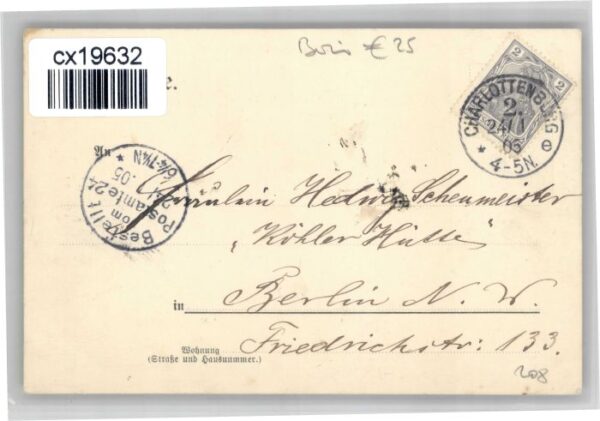 cx19632
Bozis € 25
e.
2 2
CHARLOTTENBURG
2.
24/1
05
4-5N.
e
An
Bestellt
vom
Postamte 24
.05
6¼-7¼N
Fräulein Hedwig Scheumeister
„Köhler Hütte“
in Berlin N. W.
Wohnung
(Straße und Hausnummer.)
Friedrichstr: 133.
208